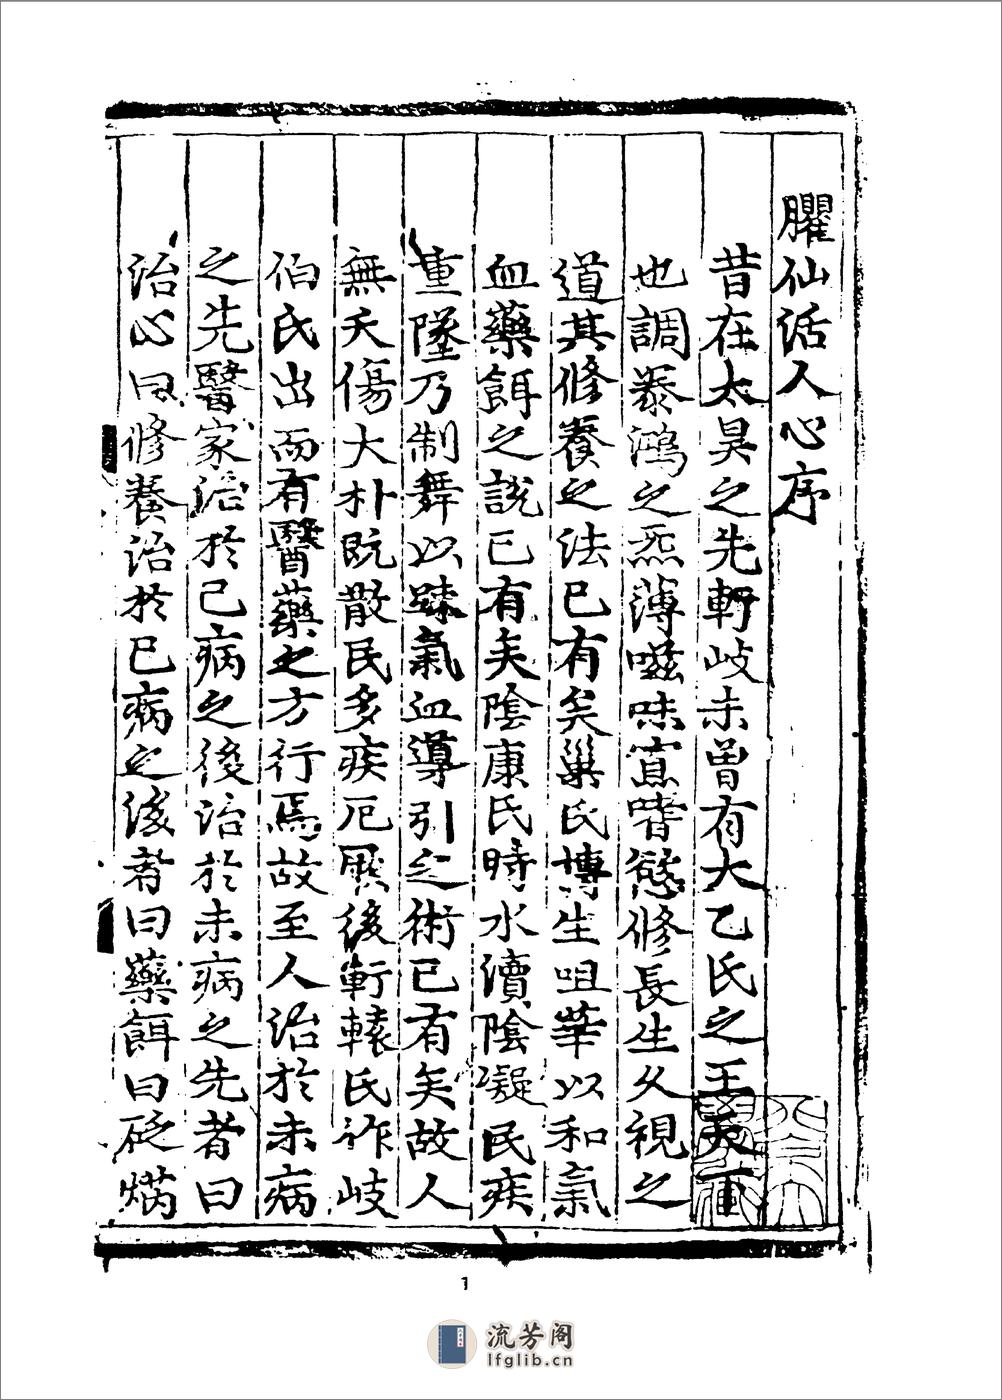 臞仙活人心序
昔在太昊之先軒岐未曾有大乙氏之王天下
也調泰鴻之炁薄嗞味寡嗜慾修長生久視之
道其修養之法已有矣巢氏博生咀華以和氣
血藥餌之說已有矣陰康氏時水瀆陰凝民疾
重墜乃制舞以踈氣血導引之術已有矣故人
無夭傷大朴既散民多疾厄厥後軒轅氏作岐
伯氏出而有醫藥之方行焉故至人治於未病
之先醫家治於已病之後治於未病之先者曰
治心曰修養治於已病之後者曰藥餌曰砭焫
1
流芳阁
lfglib.cn